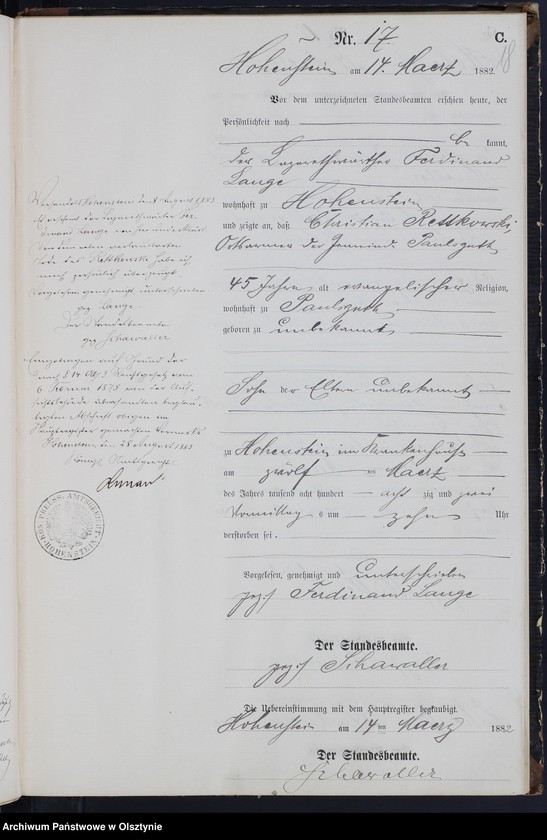 Nr. 17
C.
18
Hohenstein am 14. Maerz 1882.
Vor dem unterzeichneten Standesbeamten erschien heute, der
Persönlichkeit nach
be kannt,
der Lazarethwärther Ferdinand
Lange
wohnhaft zu Hohenstein
und zeigte an, daß Christian Rettkowski
Ortsarmer der Gemeinde Paulsgutt
45 Jahre alt evangelischer Religion,
wohnhaft zu Paulsgutt
geboren zu unbekannt
Sohn der Eltern unbekannt
zu Hohenstein im Krankenhause
am zwölf ten Maerz
des Jahres tausend acht hundert acht zig und zwei
Vormittags um zehn Uhr
verstorben sei.
Vorgelesen, genehmigt und unterschrieben
gez. Ferdinand Lange
Der Standesbeamte.
gez. Schawaller
Die Uebereinstimmung mit dem Hauptregister beglaubigt.
Hohenstein am 14 ten Maerz 1882
Der Standesbeamte.
Schawaller
Lange vor hier und
Tode des Rettkowski habe ich
vorgelesen genehmigt unterschrieben
gez. Lange
Der Standesbeamte
gez. Schawaller
Eingetragen auf Grund der
6 Februar 1875 von der Auf-
sichtsbehörde
Abschrift obigen im
Hauptregister gemachten Vermerks
Hohenstein den 28 August 1883
Königl. Amtsgericht
KÖN. PREUSS. AMTSGERICHT
HOHENSTEIN
Archiwum Państwowe w Olsztynie